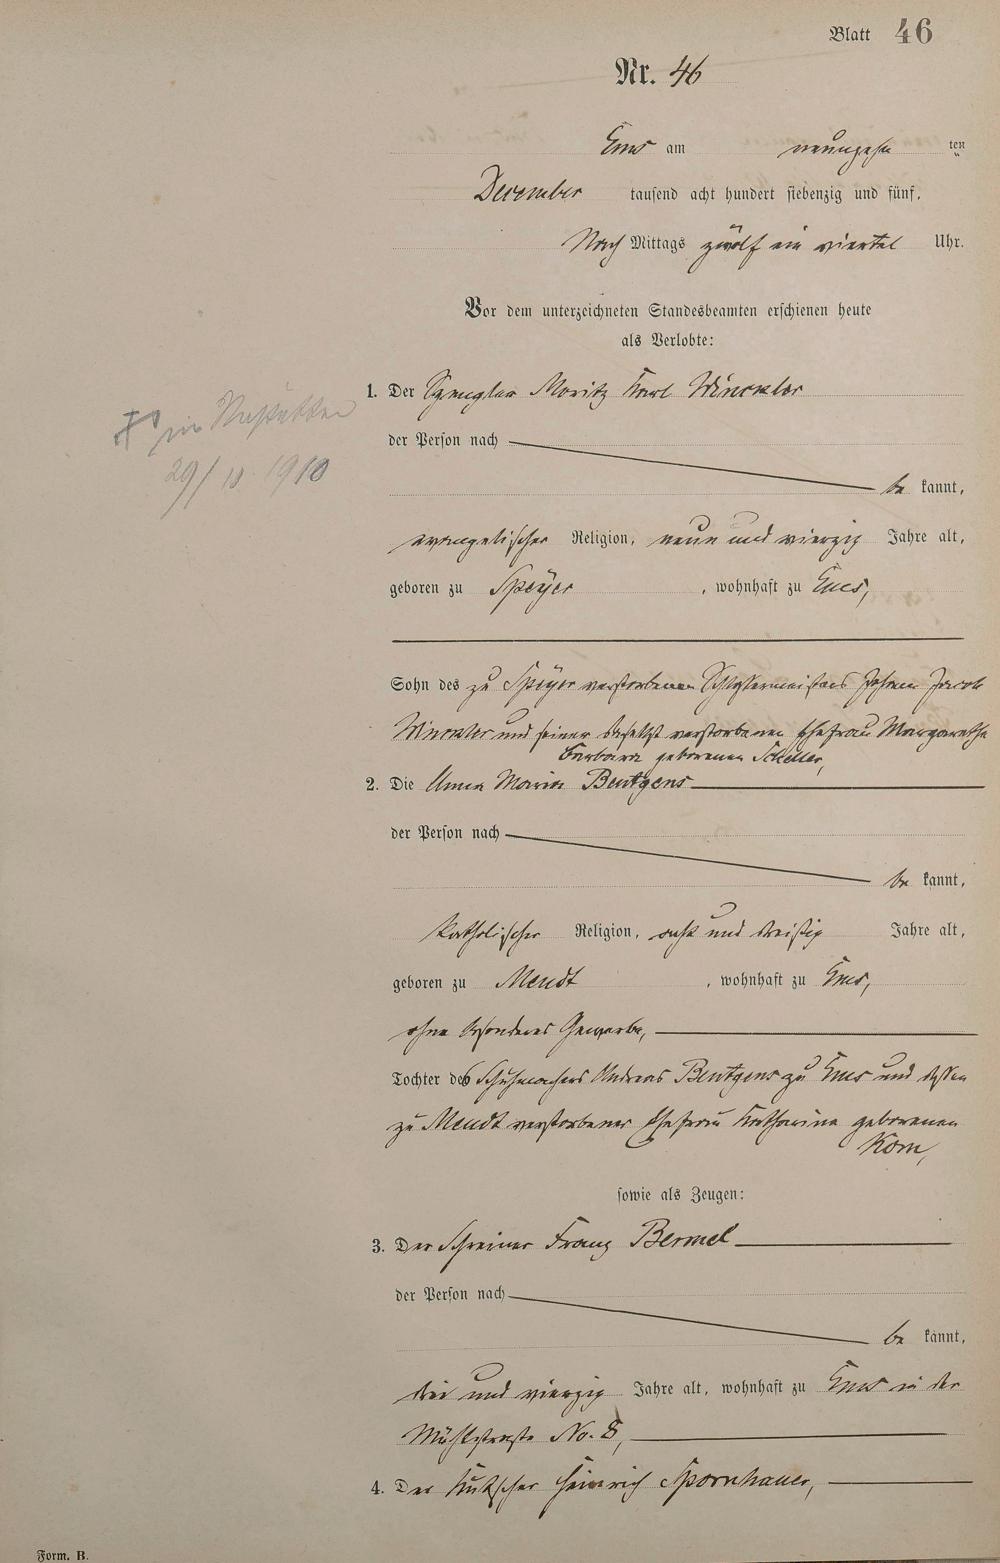 Blatt 46
Nr. 46
Ems am neunzehn ten
December tausend acht hundert siebenzig und fünf,
Nach Mittags zwölf ein viertel Uhr.
Vor dem unterzeichneten Standesbeamten erschienen heute
als Verlobte:
1. Der Spengler Moritz Karl Winckler
der Person nach
be kannt,
† in Nastätten
29/ 10. 1910
evangelischer Religion, neun und vierzig Jahre alt,
geboren zu Speÿer, wohnhaft zu Ems,
Sohn des zu Speÿer verstorbenen Schlossermeisters Johann Jacob
Winckler und seiner daselbst verstorbenen Ehefrau Margaretha
Barbara geborenen Scheller,
2. Die Anna Maria Bentgens
der Person nach
be kannt,
katholischer Religion, acht und dreißig Jahre alt,
geboren zu Mendt, wohnhaft zu Ems,
ohne besonderes Gewerbe,
Tochter des Schuhmachers Andreas Bentgens zu Ems und dessen
zu Mendt verstorbener Ehefrau Katharina geborenen
Korn,
sowie als Zeugen:
3. Der Schreiner Franz Bermel
der Person nach
be kannt,
drei und vierzig Jahre alt, wohnhaft zu Ems in der
Mühlstraße No. 8,
4. Der Kutscher Heinrich Spornhauer,
Form. B.